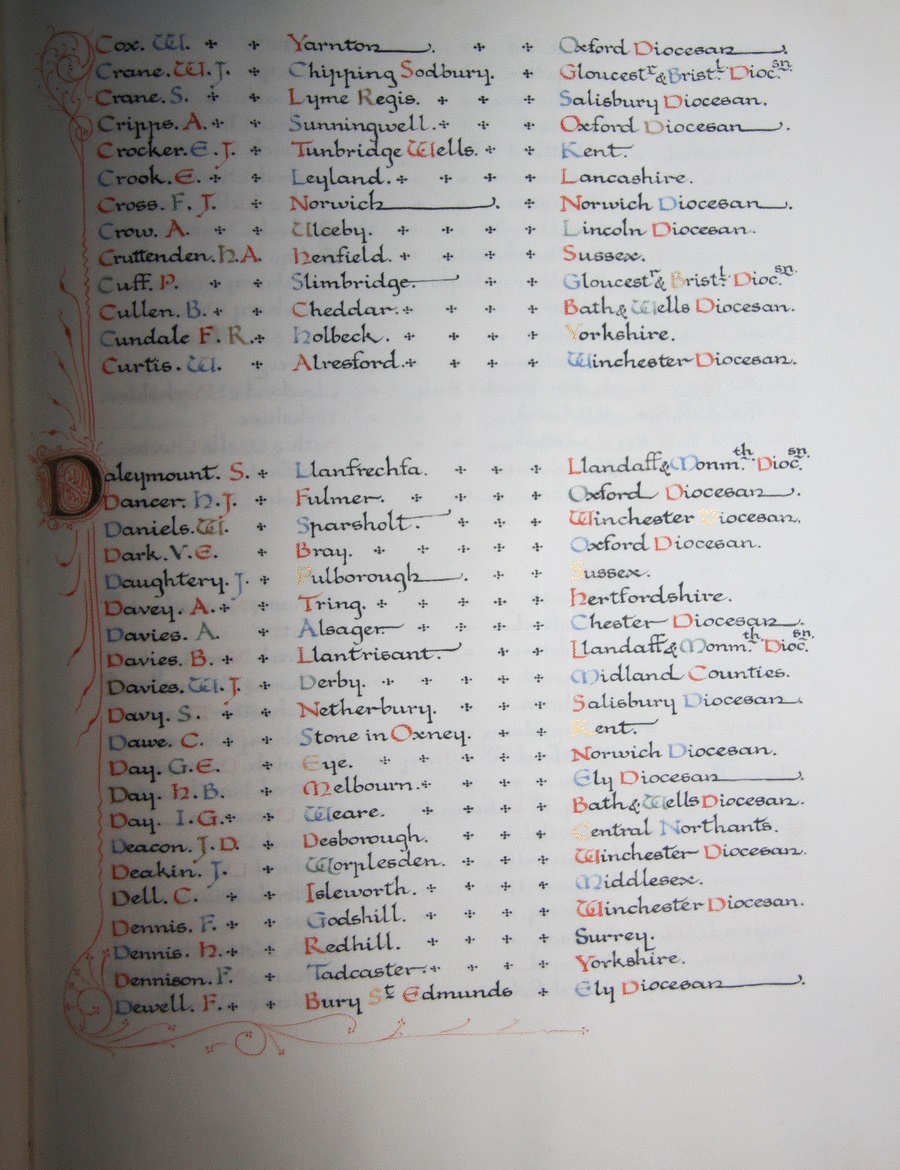 Cox. W. Yarnton. Oxford Diocesan.
Crane. W. J. Chipping Sodbury. Gloucestr & Bristl. Diocsn.
Crane. S. Lyme Regis. Salisbury Diocesan.
Cripps. A. Sunningwell. Oxford Diocesan.
Crocker. E. J. Tunbridge Wells. Kent.
Crook. E. Leyland. Lancashire.
Cross. F. J. Norwich. Norwich Diocesan.
Crow. A. Ulceby. Lincoln Diocesan.
Cruttenden. H. A. Henfield. Sussex.
Cuff. P. Slimbridge. Gloucestr. & Bristl. Diocsn.
Cullen. B. Cheddar. Bath & Wells Diocesan.
Cundale F. R. Holbeck. Yorkshire.
Curtis. W. Alresford. Winchester Diocesan.
Daleymount. S. Llanfrechfa. Llandaff & Monmth. Diocsn.
Dancer. H. J. Fulmer. Oxford Diocesan.
Daniels. W. Sparsholt. Winchester Diocesan.
Dark. V. E. Bray. Oxford Diocesan.
Daughtery. J. Pulborough. Sussex.
Davey. A. Tring. Hertfordshire.
Davies. A. Alsager. Chester Diocesan.
Davies. B. Llantrisant. Llandaff & Monmth. Diocsn.
Davies. W. J. Derby. Midland Counties.
Davy. S. Netherbury. Salisbury Diocesan.
Dawe. C. Stone in Oxney. Kent.
Day. G. E. Eye. Norwich Diocesan.
Day. H. B. Melbourn. Ely Diocesan.
Day. I. G. Weare. Bath & Wells Diocesan.
Deacon. J. D. Desborough. Central Northants.
Deakin. J. Worplesden. Winchester Diocesan.
Dell. C. Isleworth. Middlesex.
Dennis. F. Godshill. Winchester Diocesan.
Dennis. H. Redhill. Surrey.
Dennison. F. Tadcaster. Yorkshire.
Dewell. F. Bury St Edmunds Ely Diocesan.